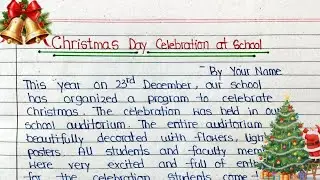 Christmas Day Celebration at School
- By Your Name
This year on 23rd December, our school
has organized a program to celebrate
Christmas. The celebration was held in our
school auditorium. The entire auditorium
beautifully decorated with flowers, light
posters. All students and faculty mem
were very excited and full of ent
for the celebration students came